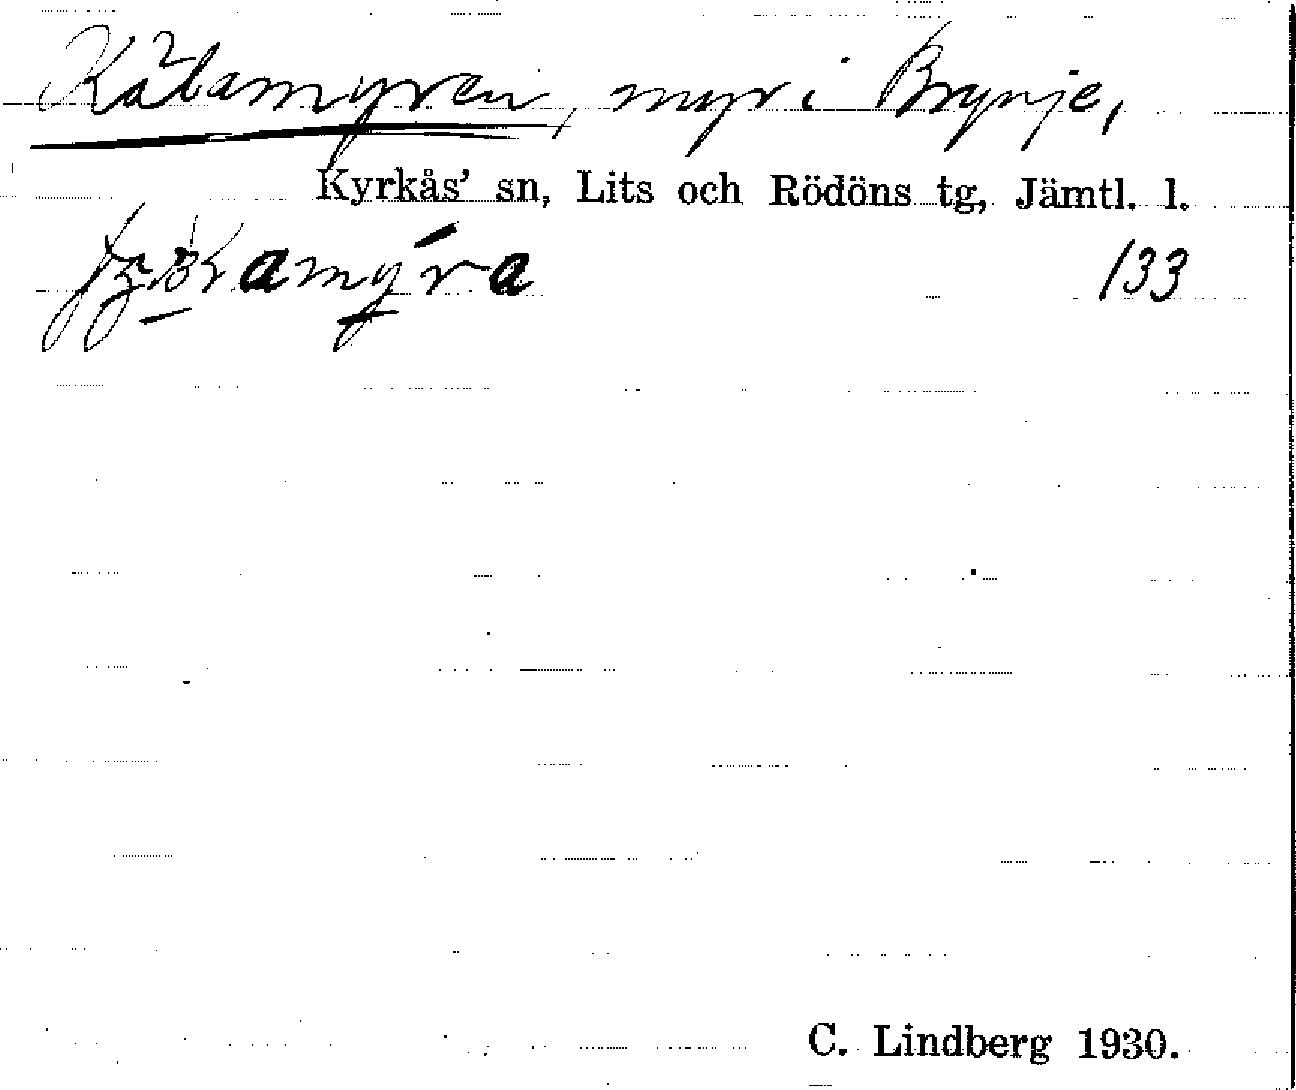 Kåtamyren, myr i Brynje,
Kyrkås' sn, Lits och Rödöns tg, Jämtl. l.
133
C. Lindberg 1930.